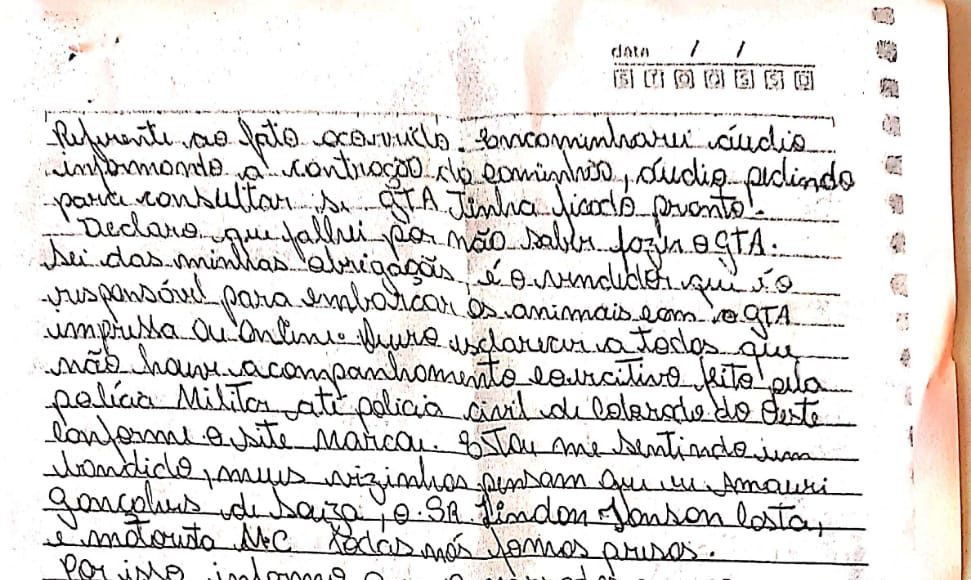 data / /
S T Q Q S S D
Referente ao fato ocorrido. Encaminharei áudio
informando a contração do caminhão, áudio pedindo
para consultar se GTA Tinha ficado pronto.
Declaro que falhei por não saber fazer o GTA.
Sei das minhas obrigações, é o vendedor que é o
responsável para embarcar os animais com o GTA
impressa ou Online. Quero esclarecer a todos que
não houve acompanhamento coercitivo feito pela
polícia Militar até policia civil de Colorado do Oeste
conforme o site marcou. Estou me sentindo um
bandido, meus vizinhos pensam que eu Amauri
Gonçalves de Souza, o SR. Lindon Jonson Costa,
e motorista M.C Todos nós fomos presos.
Por isso informo a